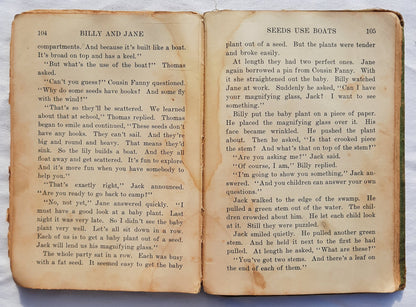 104 BILLY AND JANE
compartments. And because it's built like a boat.
It's broad on top and has a keel."
"But what's the use of the boat?" Thomas
asked.
"Can't you guess?" Cousin Fanny questioned.
"Why do some seeds have hooks? And some fly
with the wind?"
"That's so they'll be scattered. We learned
about that at school," Thomas replied. Thomas
began to smile and continued, "These seeds don't
have any hooks. They can't sail. And they're
big and round and heavy. That means they'd
sink. So the lily builds a boat. And they all
float away and get scattered. It's fun to explore.
And it's more fun when you have somebody to
help you."
"That's exactly right," Jack announced.
"Are you ready to go back to camp?"
"No, not yet," Jane answered quickly. "I
must have a good look at a baby plant. Last
night it was very late. So I didn't see the baby
plant very well. Let's all sit down in a row.
Each of us is to get a baby plant out of a seed.
Jack will lend us his magnifying glass."
The whole party sat in a row. Each was busy
with a fat seed. It seemed easy to get the baby
SEEDS USE BOATS 105
plant out of a seed. But the plants were tender
and broke easily.
At length they had two perfect ones. Jane
again borrowed a pin from Cousin Fanny. With
it she straightened out the baby. Billy watched
Jane at work. Suddenly he asked, "Can I have
your magnifying glass, Jack? I want to see
something."
Billy put the baby plant on a piece of paper.
He placed the magnifying glass over it. His
face became wrinkled. He pushed the plant
about. Then he asked, "Is that crooked piece
the stem? And what's that on top of the stem?"
"Are you asking me?" Jack said.
"Of course, I am," Billy replied.
"I'm going to show you something," Jack an-
swered. "And you children can answer your own
questions."
Jack walked to the edge of the swamp. He
pulled a green stem out of the water. The chil-
dren crowded about him. He let each child look
at it. Still they were puzzled.
Jack smiled quietly. He pulled another green
stem. And he held it next to the first he had
pulled. At length he asked, "What are these?"
"You've got two stems. And there's a leaf on
the end of each of them."